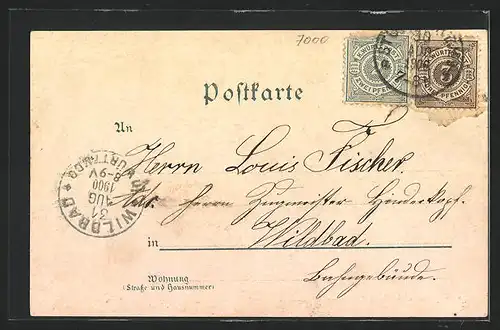 7000
K. WÜRTTEMB.
ZWEI PFENNIG
3
PFENNIG
STUTTGART
Postkarte
An
Herrn Louis Fischer.
Adr. Herrn Zugmeister Hinderkopf.
in Wildbad.
Bahngebäude.
Wohnung
(Straße und Hausnummer)
WILDBAD
31
AUG
1900
8-9V